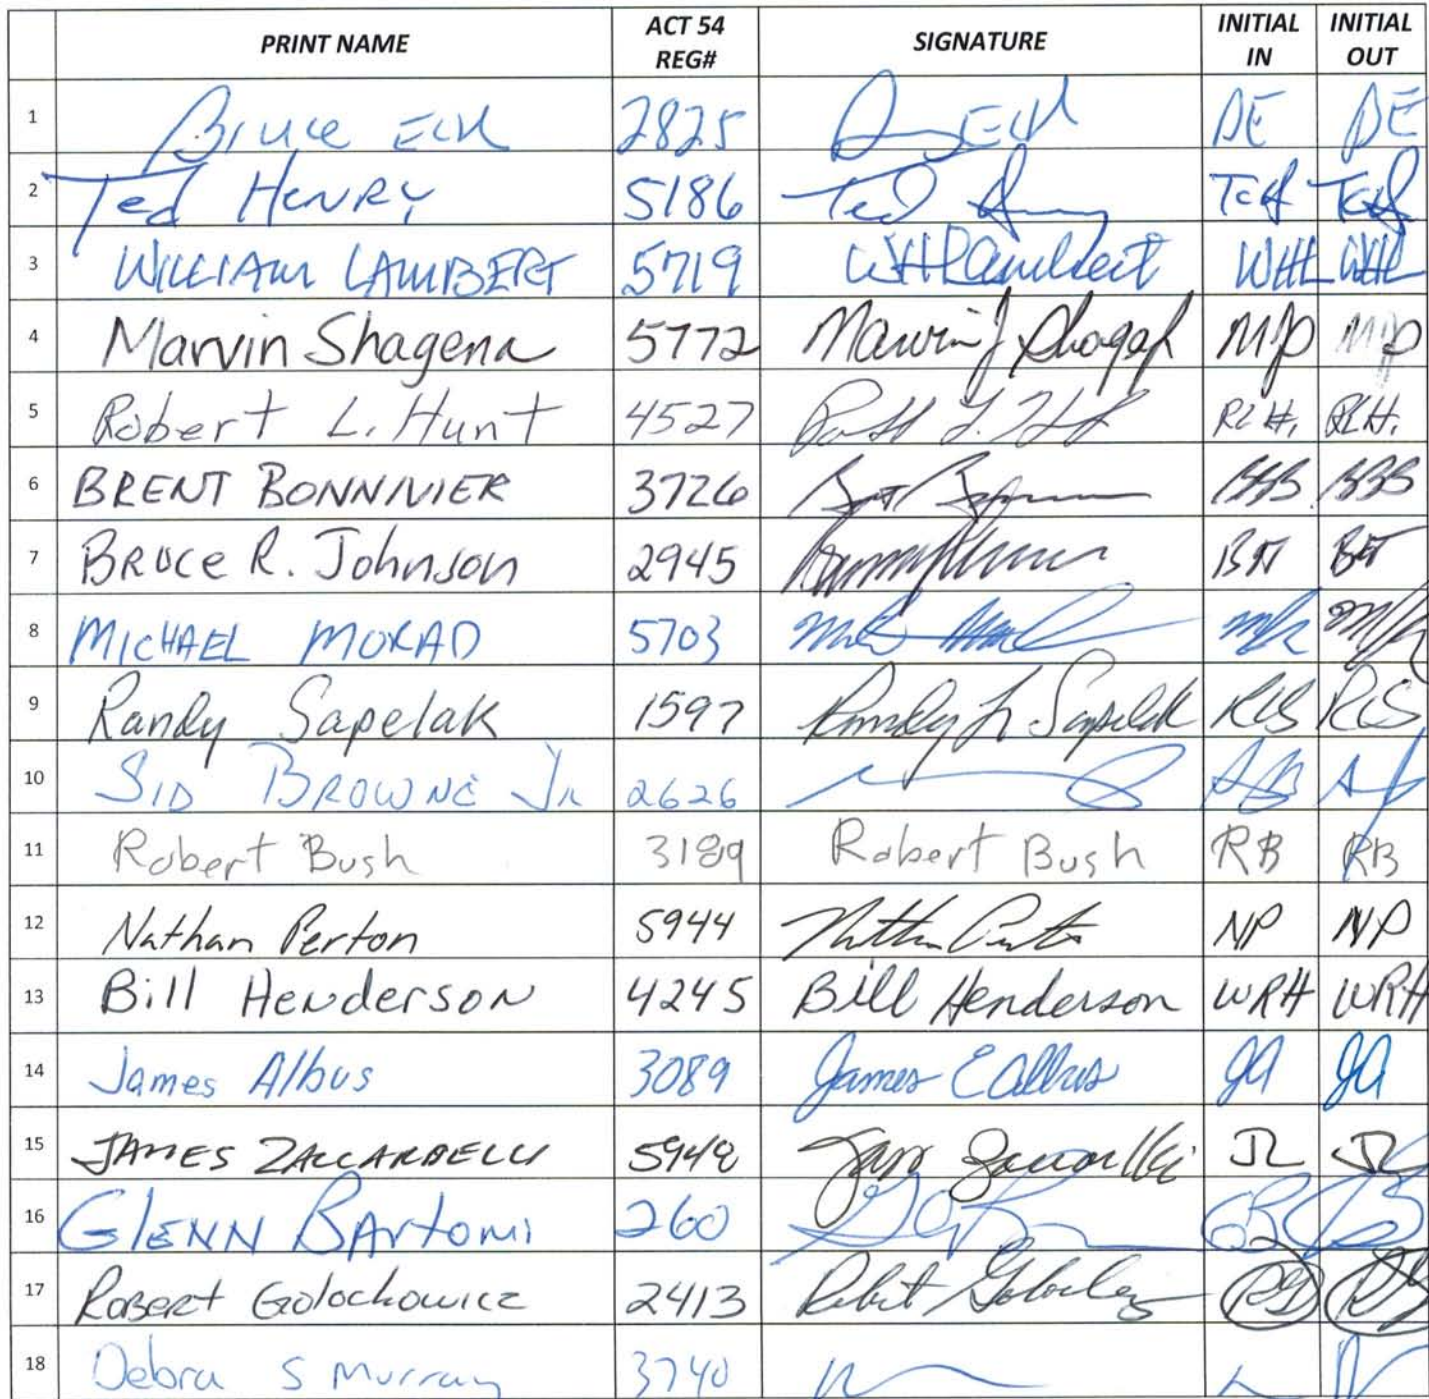 PRINT NAME ACT 54 REG# SIGNATURE INITIAL IN INITIAL OUT
1 Bruce Eck 2825 Eck BE BE
2 Ted HENRY 5186 Ted
3 WILLIAM LAMBERT 5719 WHLambert WHL WHL
4 Marvin Shagena 5772 Marvin J
5 Robert L. Hunt 4527 RLH. RLH.
6 BRENT BONNIVIER 3726 BBB BBB
7 BRUCE R. Johnson 2945 BJ BJ
8 MICHAEL MORAD 5703
9 Randy Sapelak 1597 Randy L Sapelak RLS RLS
10 SID BROWNE JR 2626
11 Robert Bush 3189 Robert Bush RB RB
12 Nathan Perton 5944 NP NP
13 Bill Henderson 4245 Bill Henderson WRH WRH
14 James Albus 3089 James E Albus JA JA
15 JAMES ZACCARDELLI 5948 JZ JZ
16 GLENN BARTOMI 260 GB
17 Robert Golochowicz 2413 RG RG
18 Debra S Murray 3740